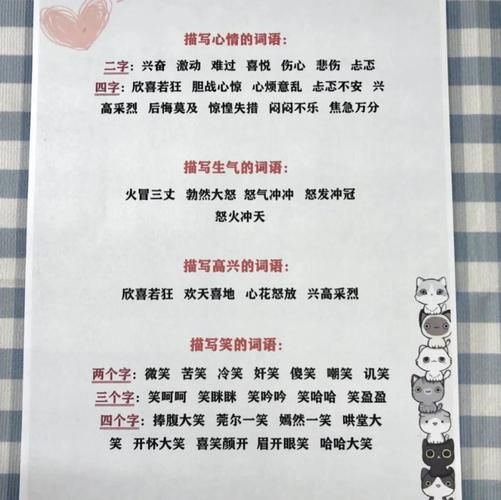 描写心情的词语:
二字: 兴奋 激动 难过 喜悦 伤心 悲伤 忐忑
四字: 欣喜若狂 胆战心惊 心烦意乱 忐忑不安 兴
高采烈 后悔莫及 惊惶失措 闷闷不乐 焦急万分
描写生气的词语:
火冒三丈 勃然大怒 怒气冲冲 怒发冲冠
怒火冲天
描写高兴的词语:
欣喜若狂 欢天喜地 心花怒放 兴高采烈
描写笑的词语:
两个字: 微笑 苦笑 冷笑 奸笑 傻笑 嘲笑 讥笑
三个字: 笑呵呵 笑眯眯 笑吟吟 笑哈哈 笑盈盈
四个字: 捧腹大笑 莞尔一笑 嫣然一笑 哄堂大
笑 开怀大笑 喜笑颜开 眉开眼笑 哈哈大笑